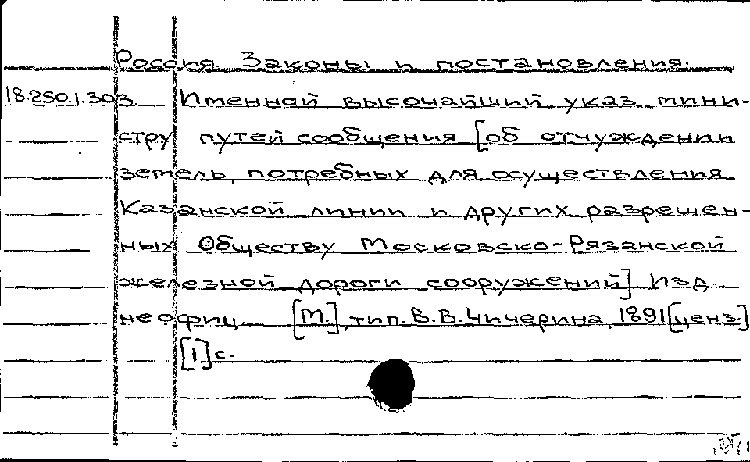 Россия. Законы и постановления.
18.250.1.303 Именной высочайший указ мини-
стру путей сообщения [об отчуждении
земель, потребных для осуществления
Казанской линии и других разрешен-
ных Обществу Московско-Рязанской
железной дороги сооружений] Изд
неофиц. [М.], тип. В.В. Чичерина, 1891 [ценз.]
[1] с.